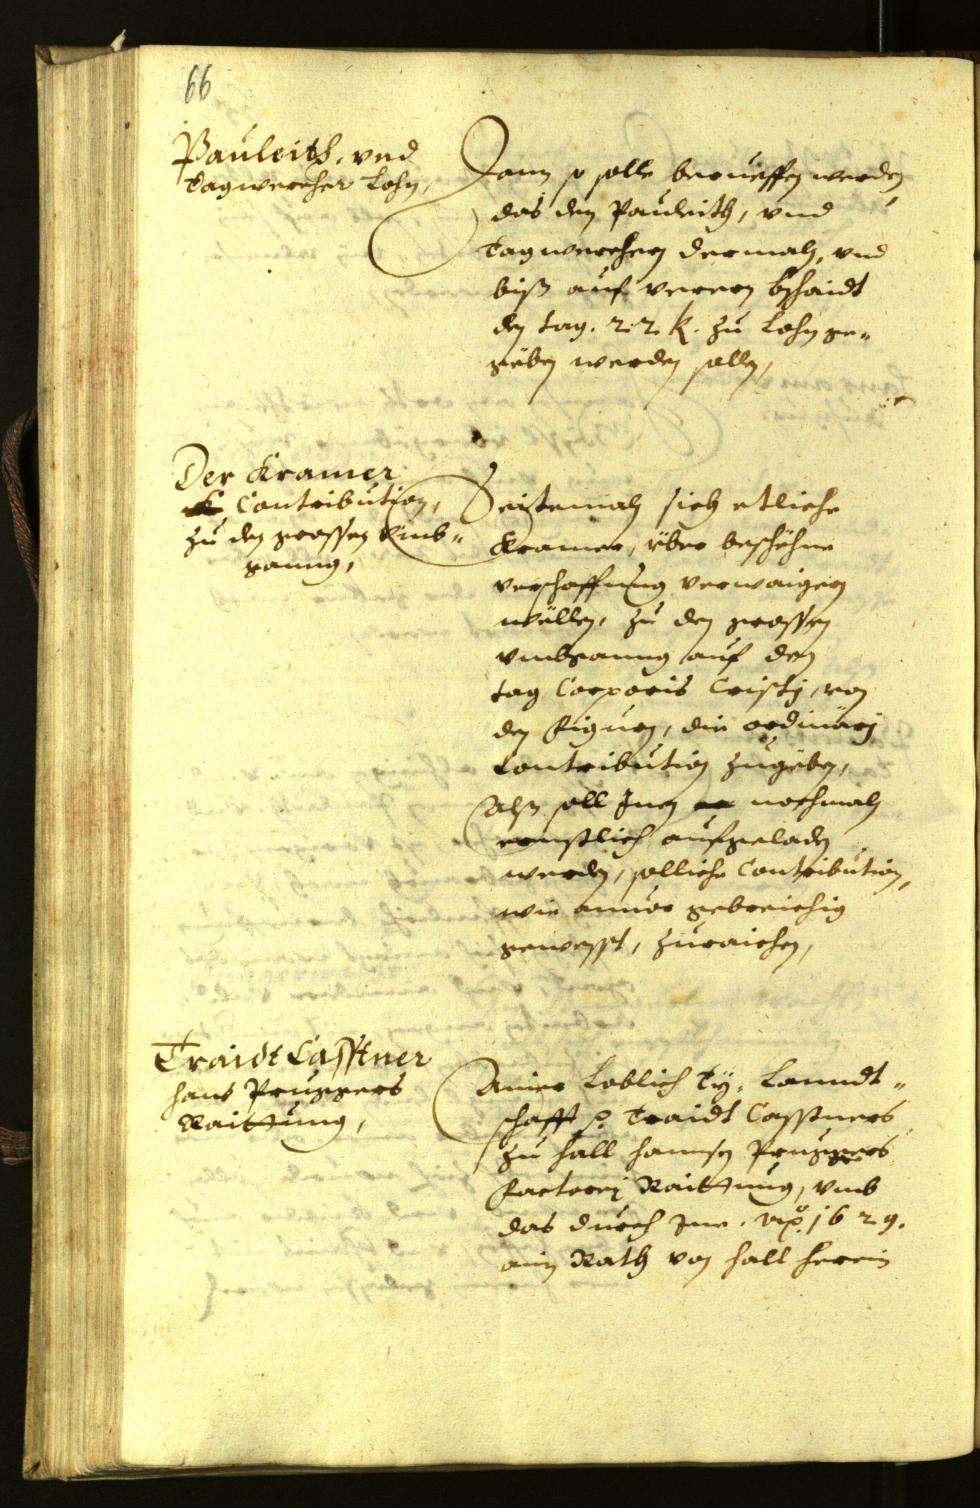 66
Pauleith, vnd
Tagwercher Lohn,
Dann so solle berueffen werden
das den Pauleith, vnd
Tagwerchern dermaln, vnd
biß auf verern bschaidt
den tag. 22 k. zu Lohn ge¬
geben werden sollen,
Der Kramer
Contribution,
zu den grossen Vmb¬
ganng,
Seitemaln sich etliche
Kramer, über beschehne
verschaffung verwaigern
wöllen, zu den grossen
vmbganng auf den
tag Corporis Cristj, von
den Figuren, die ordinärj
Contribution zugeben,
Alß soll Inen nochmaln
ernstlich aufgeladen
werden, solliche Contribution,
wie annor gebreichig
gewesst, zuraichen,
Traidt Casstner
Hans Pruggers
Raittung,
Ainer Loblich Ty. Lanndt¬
schafft p. Traidt Casstners
zu Hall Hannsen Pruggers
Factorej Raittung, vmb
das durch Ine. 1629.
ain Rath von Hall herein